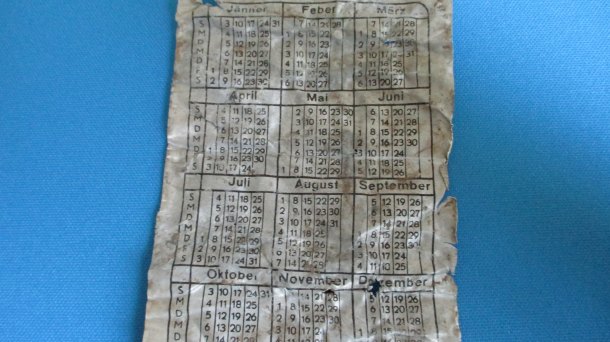 Jänner Feber März
S 3 10 17 24 31 7 14 21 28 7 14 21 28
M 4 11 18 25 1 8 15 22 1 8 15 22 29
D 5 12 19 26 2 9 16 23 2 9 16 23 30
M 6 13 20 27 3 10 17 24 3 10 17 24 31
D 7 14 21 28 4 11 18 25 4 11 18 25
F 1 8 15 22 29 5 12 19 26 5 12 19 26
S 2 9 16 23 30 6 13 20 27 6 13 20 27
April Mai Juni
S 4 11 18 25 2 9 16 23 30 6 13 20 27
M 5 12 19 26 3 10 17 24 31 7 14 21 28
D 6 13 20 27 4 11 18 25 1 8 15 22 29
M 7 14 21 28 5 12 19 26 2 9 16 23 30
D 1 8 15 22 29 6 13 20 27 3 10 17 24
F 2 9 16 23 30 7 14 21 28 4 11 18 25
S 3 10 17 24 1 8 15 22 29 5 12 19 26
Juli August September
S 4 11 18 25 1 8 15 22 29 5 12 19 26
M 5 12 19 26 2 9 16 23 30 6 13 20 27
D 6 13 20 27 3 10 17 24 31 7 14 21 28
M 7 14 21 28 4 11 18 25 1 8 15 22 29
D 1 8 15 22 29 5 12 19 26 2 9 16 23 30
F 2 9 16 23 30 6 13 20 27 3 10 17 24
S 3 10 17 24 31 7 14 21 28 4 11 18 25
Oktober November Dezember
S 3 10 17 24 31 14 21 28 5 12 19 26
M 4 11 18 25 1 8 15 22 29 6 13 20 27
D 5 12 19 26 2 9 16 23 30 7 14 21 28
M 6 13 20 27 3 10 17 24 1 8 15
D 7 14 21 28